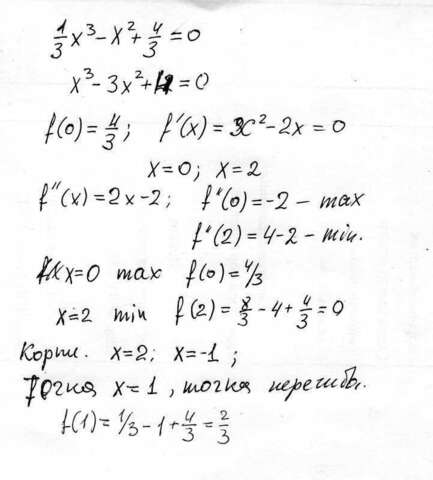 1/3 x³ - x² + 4/3 = 0
x³ - 3x² + 4 = 0
f(0) = 4/3; f'(x) = x² - 2x = 0
x = 0; x = 2
f''(x) = 2x - 2; f''(0) = -2 - max
f''(2) = 4 - 2 - min.
x = 0 max f(0) = 4/3
x = 2 min f(2) = 8/3 - 4 + 4/3 = 0
Корни. x = 2; x = -1;
Точка x = 1, точка перегиба.
f(1) = 1/3 - 1 + 4/3 = 2/3